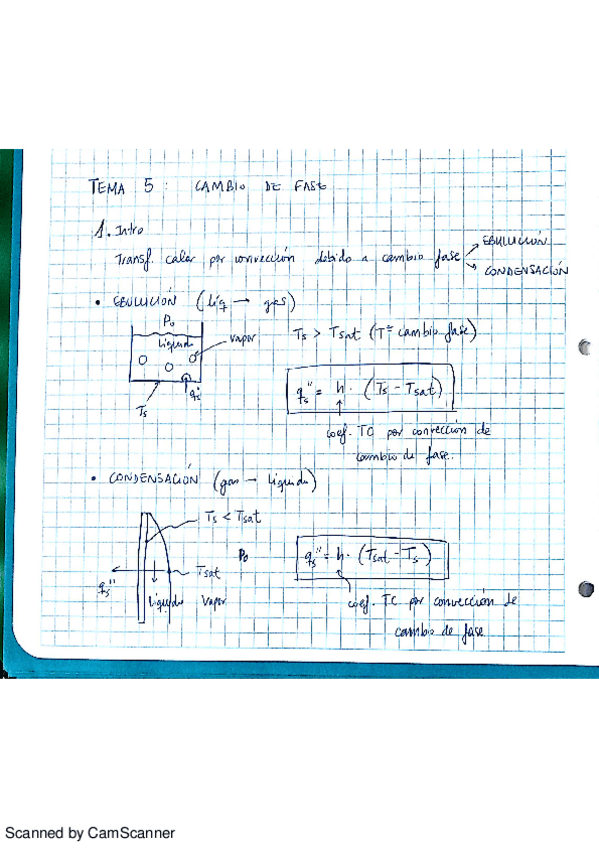 TEMA 5: CAMBIO DE FASE
1. Intro
Transf. calor por convección debido a cambio fase
EBULLICIÓN
CONDENSACIÓN
• EBULLICIÓN (líq → gas)
P₀
Líquido
vapor
Ts
qs''
Ts > Tsat (Tª cambio fase)
qs'' = h · (Ts - Tsat)
coef. TC por convección de
cambio de fase.
• CONDENSACIÓN (gas → líquido)
Ts < Tsat
P₀
Tsat
qs''
líquido
vapor
qs'' = h · (Tsat - Ts)
coef. TC por convección de
cambio de fase
Scanned by CamScanner